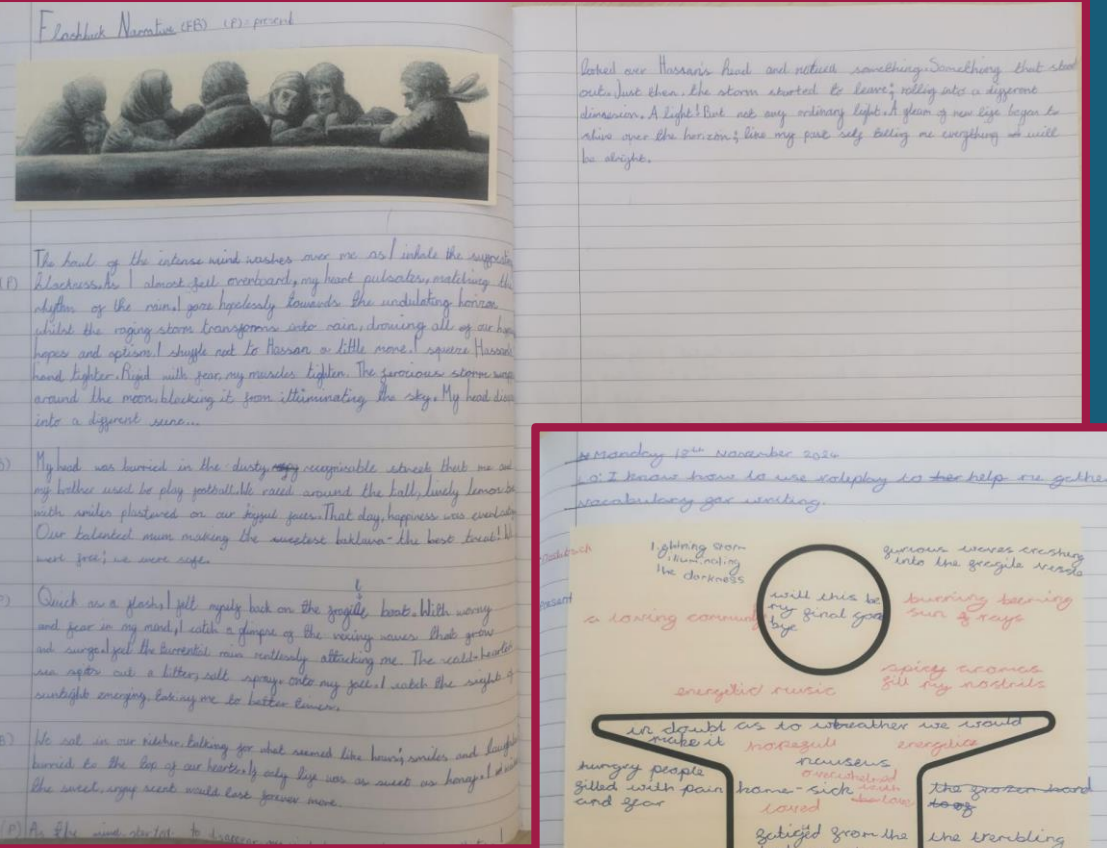 Flashback Narrative (FB) (P): present
The howl of the intense wind washes over me as I inhale the
(P) blackness. As I almost fell overboard, my heart pulsates, matching the
rhythm of the rain. I gaze hopelessly towards the undulating horizon
whilst the raging storm transforms into rain, drowing all of our
hopes and options. I shuffle next to Hassan a little more. I squeeze Hassan's
hand tighter. Rigid with fear, my muscles tighten. The ferocious storm
around the moon, blocking it from illiuminating the sky. My head
into a different
My head was burried in the dusty recognisable street that me and
my brother used to play football. We raced around the ball,
with smiles plastered on our joyful faces. That day, happiness was
Our talented mum making the sweetest baklava - the best treat! We
were free; we were safe.
Quick as a flash, I fell myself back on the fragile boat. With worry
and fear in my mind, I catch a glimpse of the waves that grow
and surge. I feel the rain attacking me. The
sea spits out a salt spray onto my face. I catch the sight of
sunlight emerging, taking me to better times.
We sat in our kitchen talking for what seemed like hours; smiles and
burried to the top of our hearts. If only life was as sweet as
the sweet, scent would last forever more.
(P) As the wind started to
looked over Hassan's head and noticed something. Something that stood
out. Just then, the storm started to leave; rolling into a different
dimension. A light! But not any ordinary light. A gleam of new life began to
shine over the horizon; like my past self telling me everything will
be alright.
Monday 18th November 2024
I know how to use roleplay to help me gather
vocabulary for writing.
flashback
present
lightning storm
illuminating
the darkness
furious waves crashing
into the fragile vessle
will this be
my final good
bye
a loving community
burning beeming
sun of rays
spicy aromas
fill my nostrils
energetic music
in doubt as to we would
make it
hopefull
energetic
nauseus
hungry people
filled with pain
and fear
home-sick
overwhelmed
with
love
loved
the frozen hand
fatiged from the
the trembling